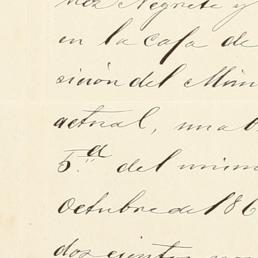 nez Negrete y
en la casa de
sición del Mun
actual, una b
5.ª del mism
Octubre de 186
doscientos